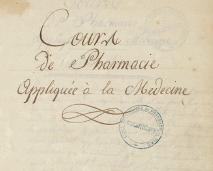 Cours
de Pharmacie
Appliquée à la Medecine